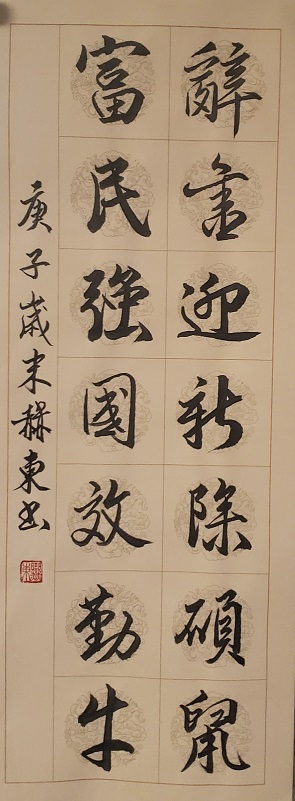 辭迎新除碩鼠
富民強國效勤牛
庚子歲末東書